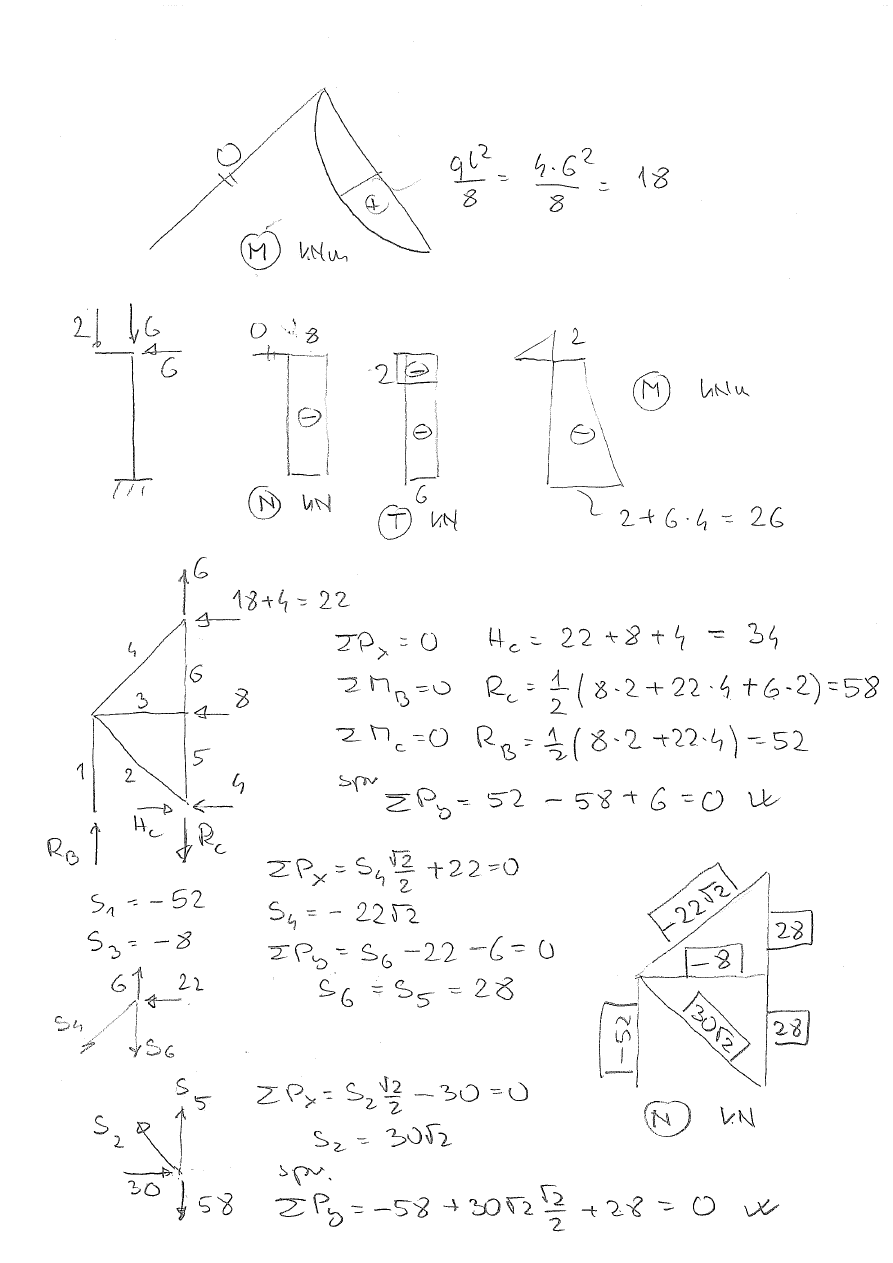 0
ql²/8 = 4·6²/8 = 18
+
M kNm
2 6
6
0 8
2
2
-
-
-
-
M kNm
N kN
6
T kN
2+6·4 = 26
6
18+4 = 22
4
6
3
8
1
2
5
4
H_C
R_B
R_C
ΣP_x = 0 H_C = 22 + 8 + 4 = 34
ΣM_B = 0 R_C = 1/2 (8·2 + 22·4 + 6·2) = 58
ΣM_C = 0 R_B = 1/2 (8·2 + 22·4) = 52
spr
ΣP_y = 52 - 58 + 6 = 0
S₁ = -52
S₃ = -8
6 22
S₄
S₆
ΣP_x = S₄ √2/2 + 22 = 0
S₄ = -22√2
ΣP_y = S₆ - 22 - 6 = 0
S₆ = S₅ = 28
-22√2
28
-8
-52
30√2
28
N kN
S₅
S₂
30
58
ΣP_x = S₂ √2/2 - 30 = 0
S₂ = 30√2
spr.
ΣP_y = -58 + 30√2 √2/2 + 28 = 0